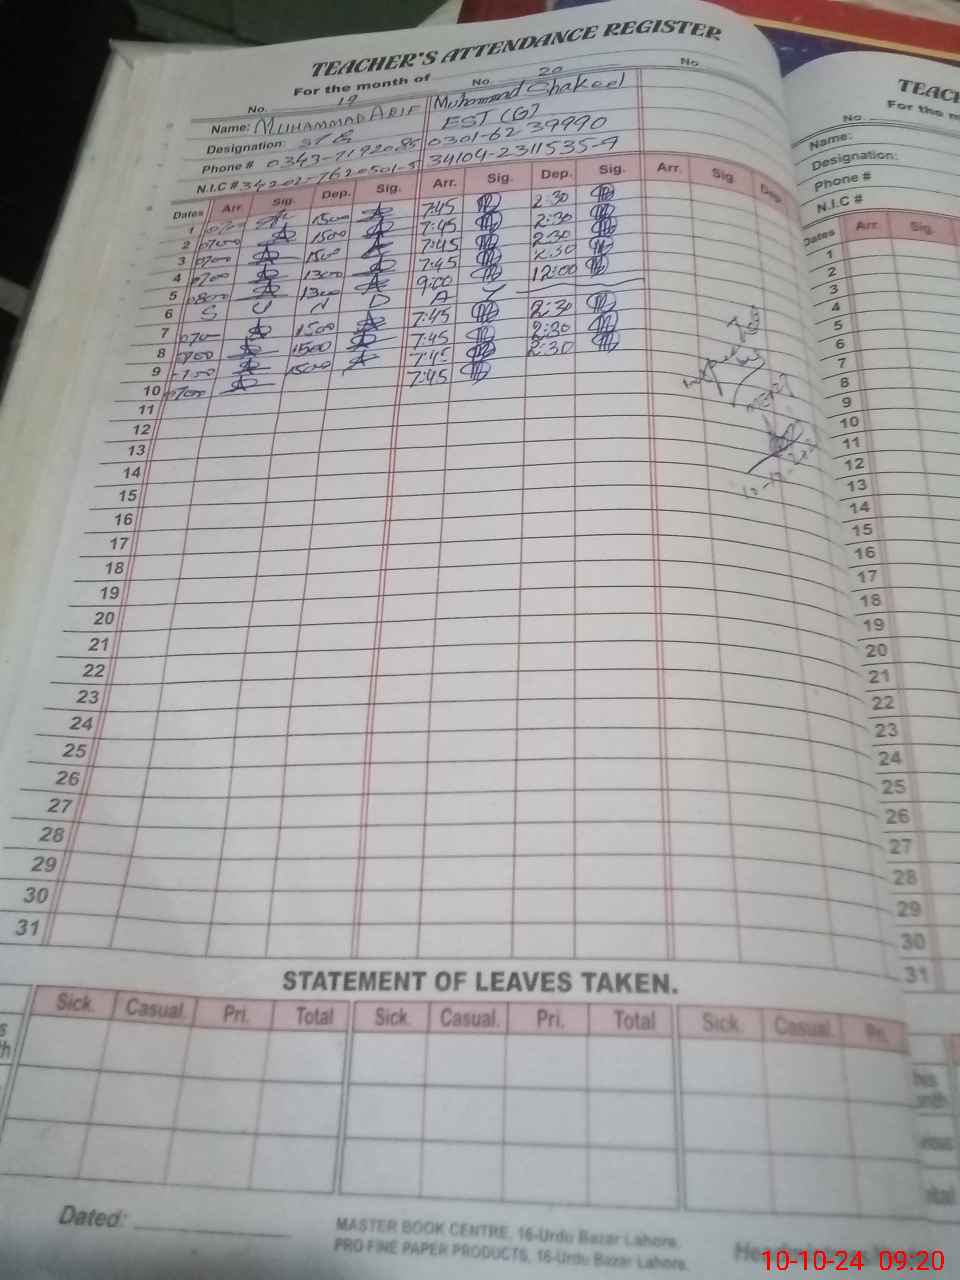 TEACHER'S ATTENDANCE REGISTER
For the month of
No. 19 No. 20 No.
Name: MUHAMMAD ARIF Muhammad Shakeel
Designation: EST (G)
Phone # 0301-6239990
N.I.C # 34202-7620501-5 34104-2311535-7
Dates Arr. Sig. Dep. Sig. Arr. Sig. Dep. Sig. Arr. Sig. Dep.
1 0700 1500 7:45 2:30
2 0700 1500 7:45 2:30
3 0700 1500 7:45 2:30
4 0700 1300 7:45 2:30
5 0800 1300 9:00 12:00
6 S U N D A Y
7 0700 1500 7:45 2:30
8 0700 1500 7:45 2:30
9 0700 1500 7:45 2:30
10 0700 7:45
11
12
13
14
15
16
17
18
19
20
21
22
23
24
25
26
27
28
29
30
31
STATEMENT OF LEAVES TAKEN.
Sick. Casual. Pri. Total Sick. Casual. Pri. Total Sick. Casual. Pri.
Dated:
MASTER BOOK CENTRE, 16-Urdu Bazar Lahore.
PRO FINE PAPER PRODUCTS, 16-Urdu Bazar Lahore.
TEAC
For the m
No.
Name:
Designation:
Phone #
N.I.C #
Dates Arr. Sig.
1
2
3
4
5
6
7
8
9
10
11
12
13
14
15
16
17
18
19
20
21
22
23
24
25
26
27
28
29
30
31
10-10-24 09:20